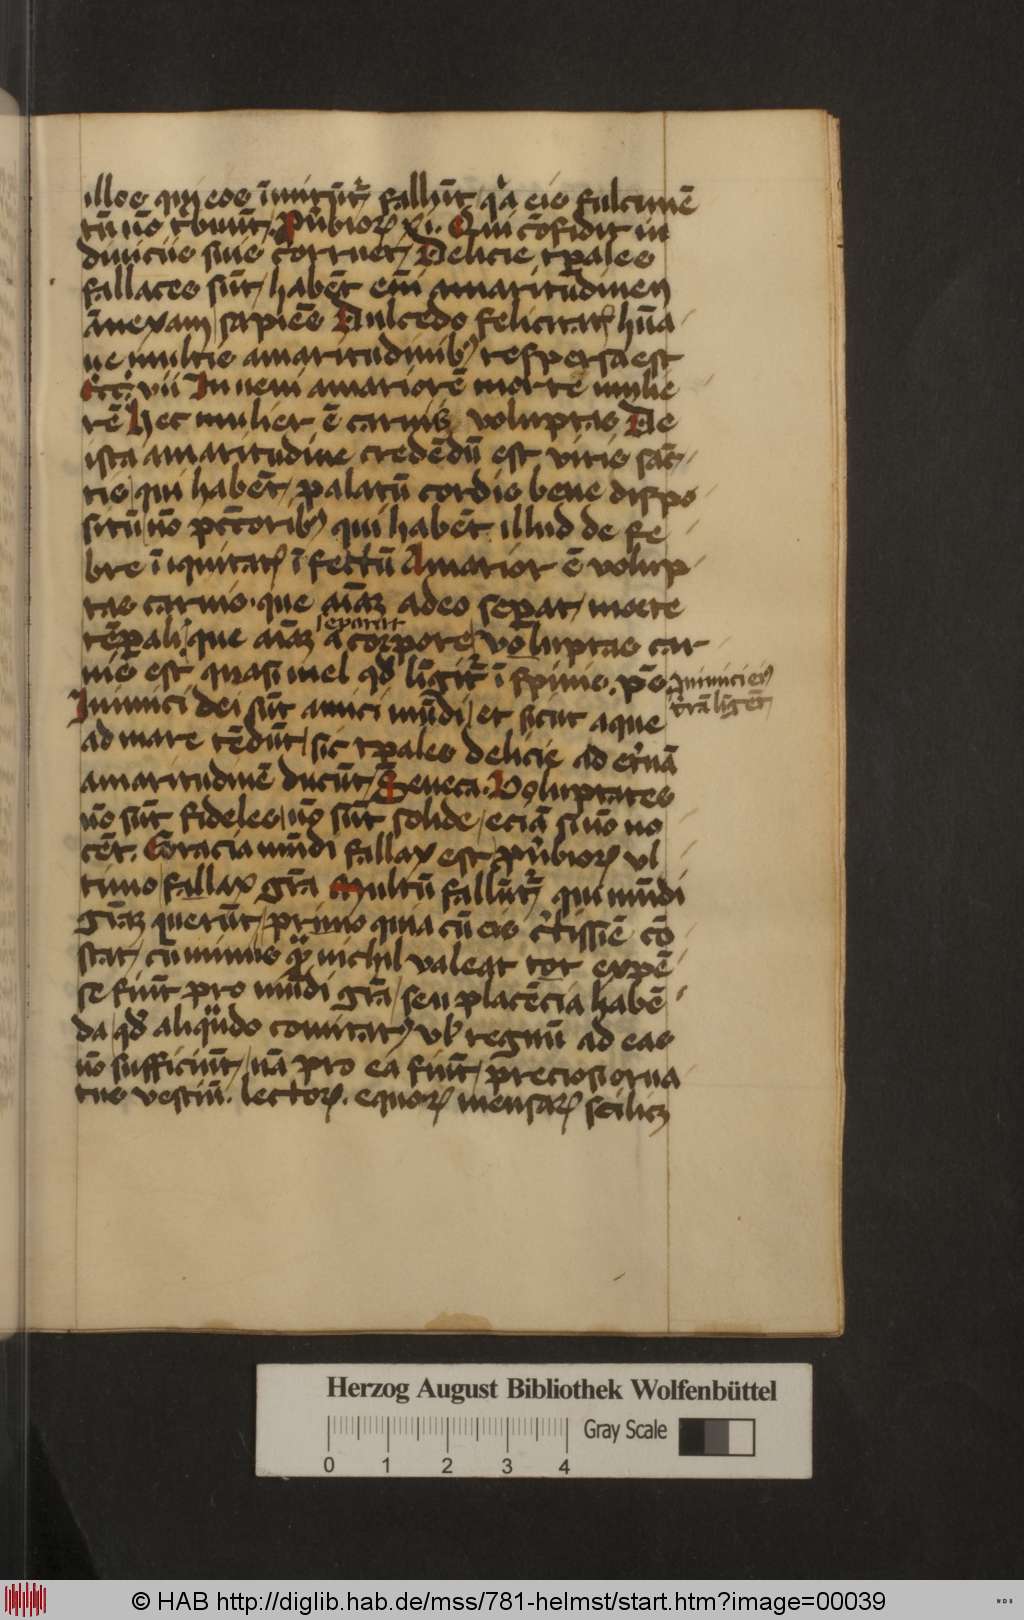 illos qui eos īnitūt᷑ fallūt qͥa eis fulcimē
tū nō t͛buūt. Pͮbioꝝ xi. Qui cōfidit in
diuiciis suis corruet / Delicie tꝑales
fallaces sūt / habēt em̄ amaritudinem
ānexam sapiēs Dulcedo felicitatꝭ hūa
ne multis amaritudinibꝰ respersa est
Ecc̄ vii Inueni amariorē morte mulie
rē hec mulier ē carnis voluptas De
ista amaritudine credēdū est viris sāc
tis qui habēt palatū cordis bene dispo
situ nō pctōribꝰ qui habēt illud de fe
bre īiquitatꝭ īfectū Amarior ē volup
tas carnis que aīaꝫ adeo seꝑat morte
tēꝑali que aīaꝫ separat a corpore voluptas car
nis est quasi mel qd̛ līgit᷑ ī spinis. pō
Inimici dei sūt amici mūdi / et sicut aque
ad mare tēdūt / sic tꝑales delicie ad et͛nā
amaritudinē ducūt / Seneca. Voluptates
nō sūt fideles / nō sūt solide / eciā si nō no
cēt. Gracia mūdi fallax est pͮbioꝝ vl
timo fallax gr̄a Multū fallūt᷑ qui mūdi
gr̄aꝫ querūt / primo quia cū eis c͛tissīe cō
stat / cū minus ꝙ̄ nichil valeat tot expē
se fiūt pro mūdi gr̄a / seu placēcia habē
da / qd̛ aliqn̄do comitatꝰ vl̛ regnū ad eas
nō sufficiūt / nā pro ea fiūt / preciosi orna
tus vestiū. lectoꝝ. equoꝝ mensaꝝ scilicꝫ
Inimici eiꝰ
t͛rā līgēt
Herzog August Bibliothek Wolfenbüttel
Gray Scale
0 1 2 3 4
© HAB http://diglib.hab.de/mss/781-helmst/start.htm?image=00039